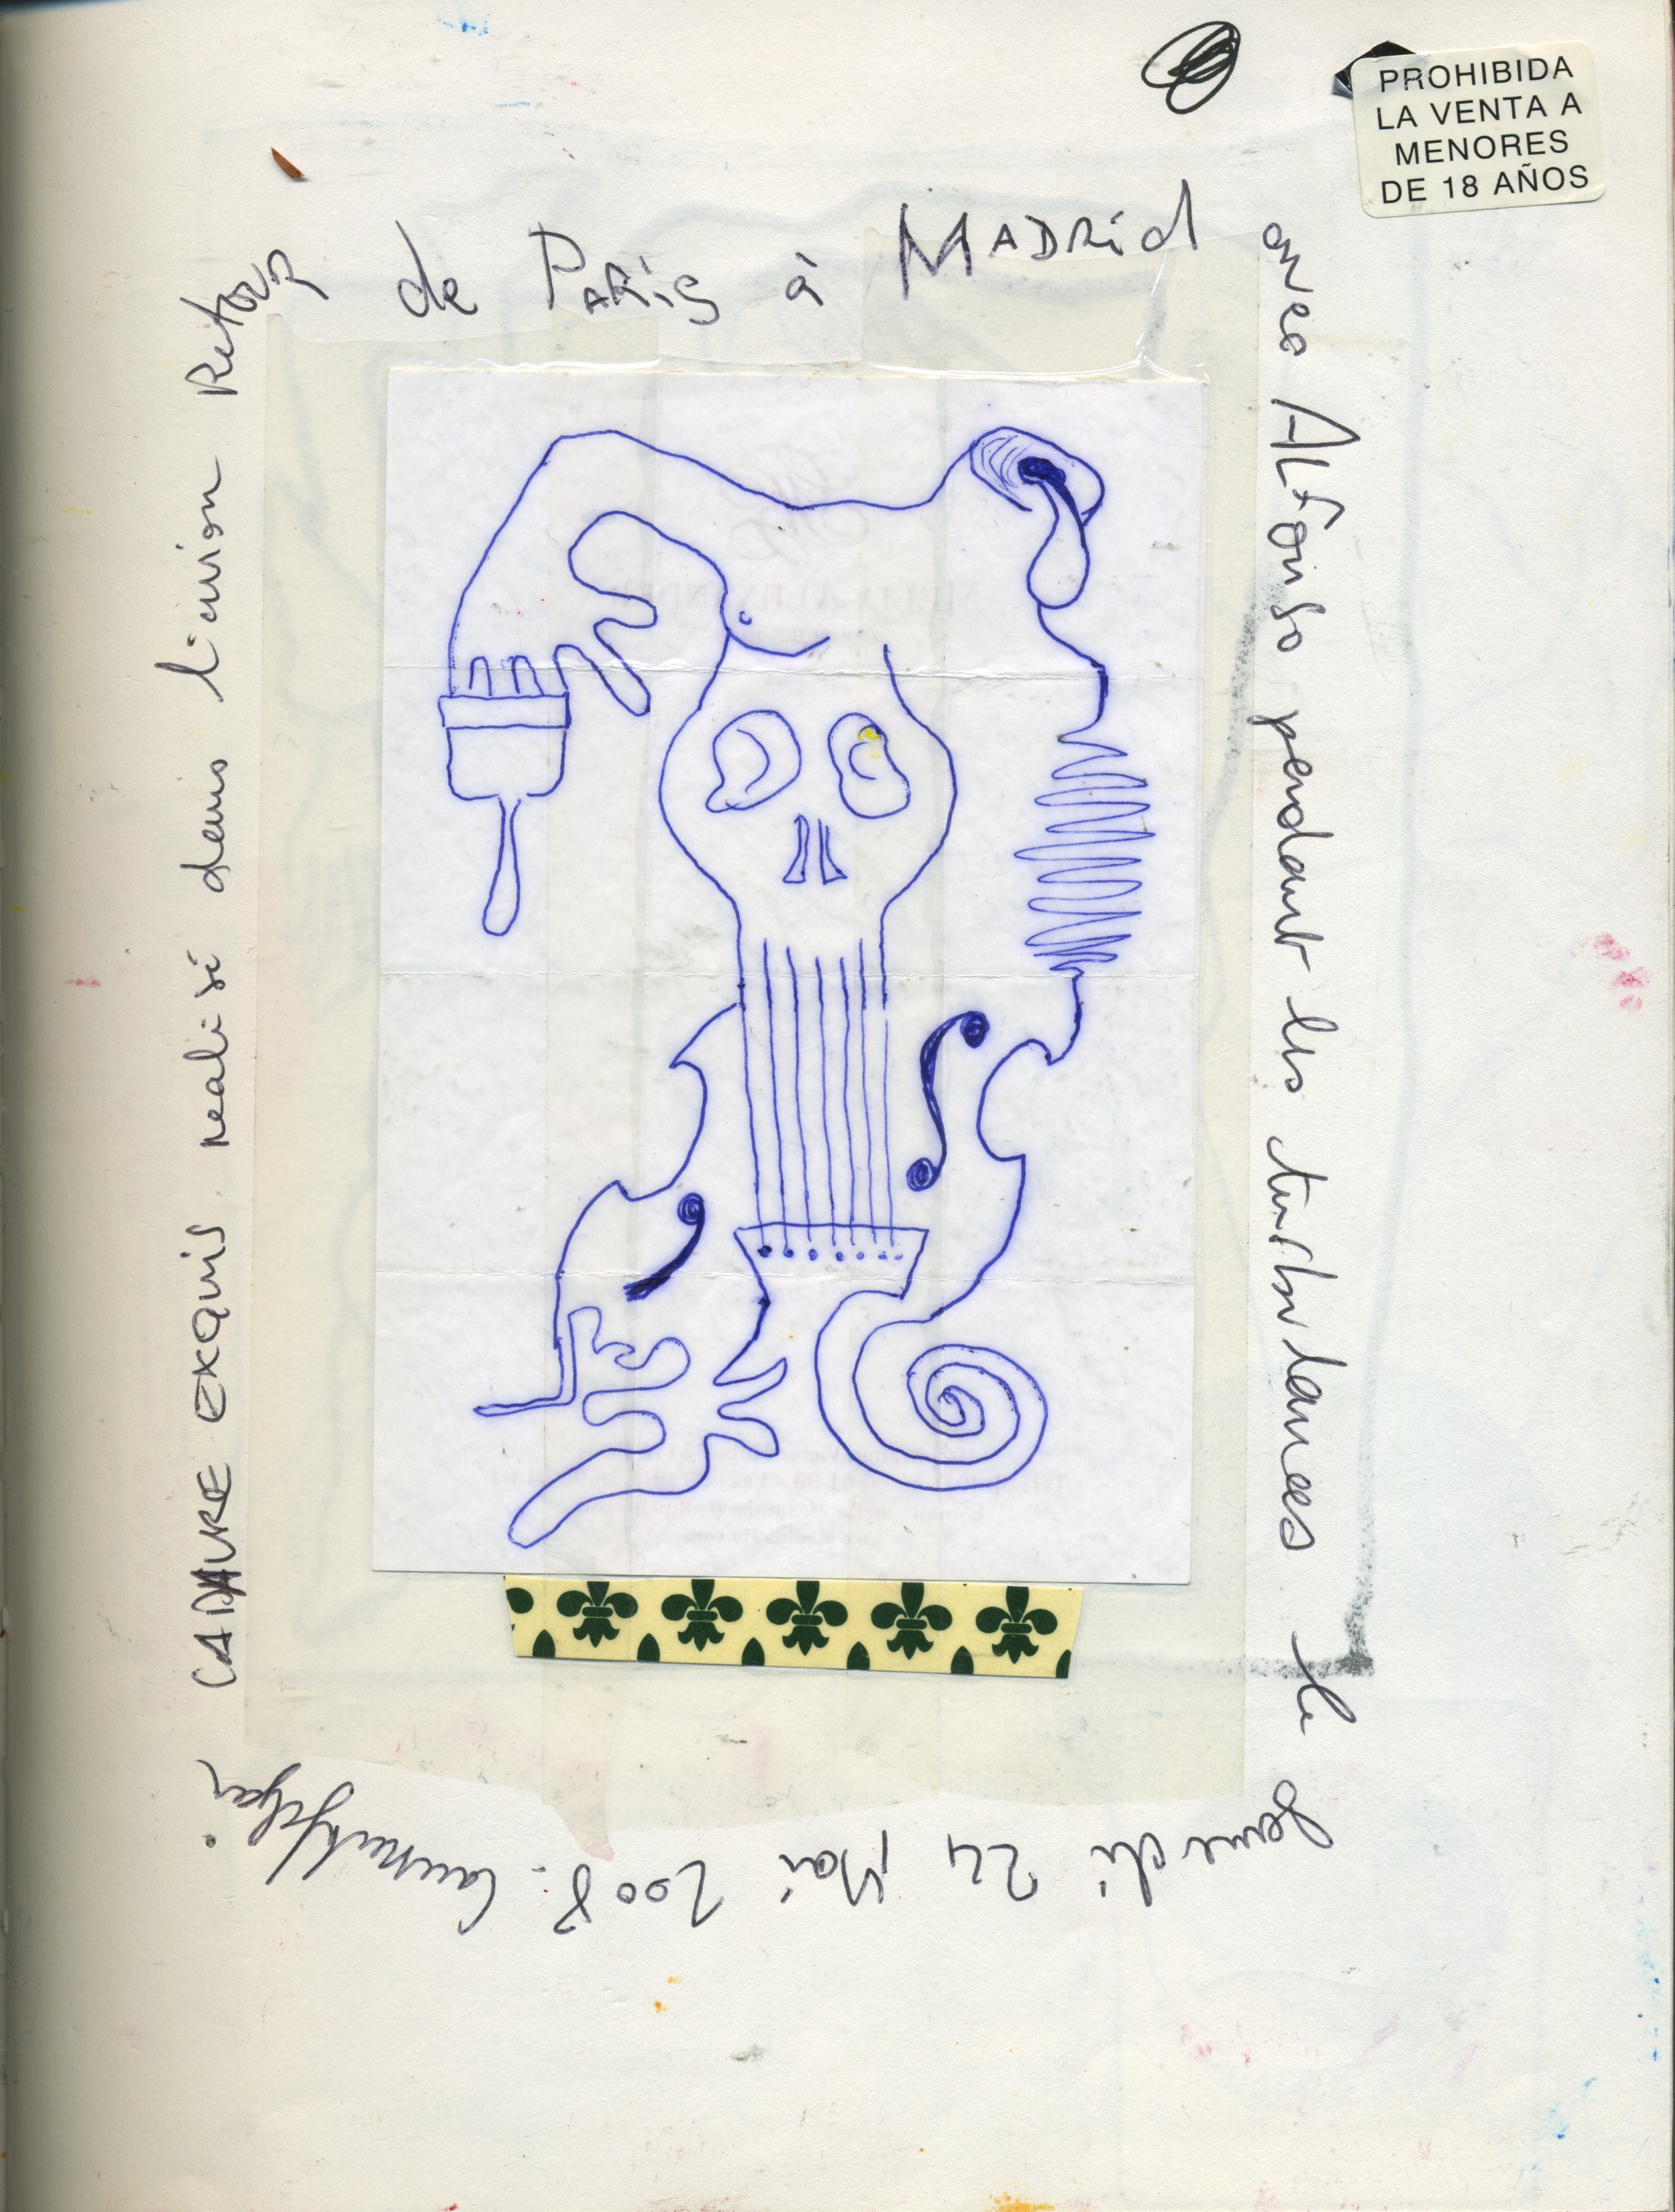 PROHIBIDA
LA VENTA A
MENORES
DE 18 AÑOS
CADAVRE EXQUIS realisé dans l'avion Retour
de PARis à MADRid
avec ALFonso pendant les turbulances le
Samedi 24 Mai 2008.